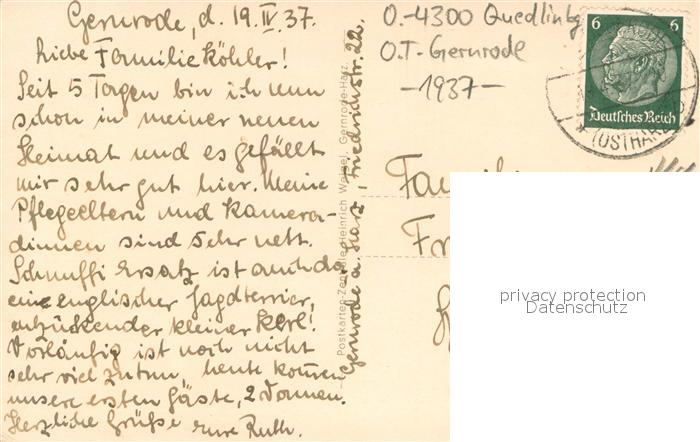 Gernrode, d. 19. IV. 37.
Liebe Familie Köhler!
Seit 5 Tagen bin ich nun
schon in meiner neuen
Heimat und es gefällt
mir sehr gut hier. Meine
Pflegeeltern und Kamera-
dinnen sind sehr nett.
Schnuffi Ersatz ist auch da
ein englischer Jagdterrier,
entzückender kleiner Kerl!
Vorläufig ist noch nicht
sehr viel zu tun, heute kommen
unsere ersten Gäste, 2 Damen.
Herzliche Grüße eure Ruth.
Gernrode a. Harz, Friedrichstr. 22.
Postkarten-Zentrale Heinrich Gernrode-Harz.
O.-4300 Quedlinbg
O.T.-Gernrode
-1937-
6 6
Deutsches Reich
(OSTHARZ)
Fr
privacy protection
Datenschutz